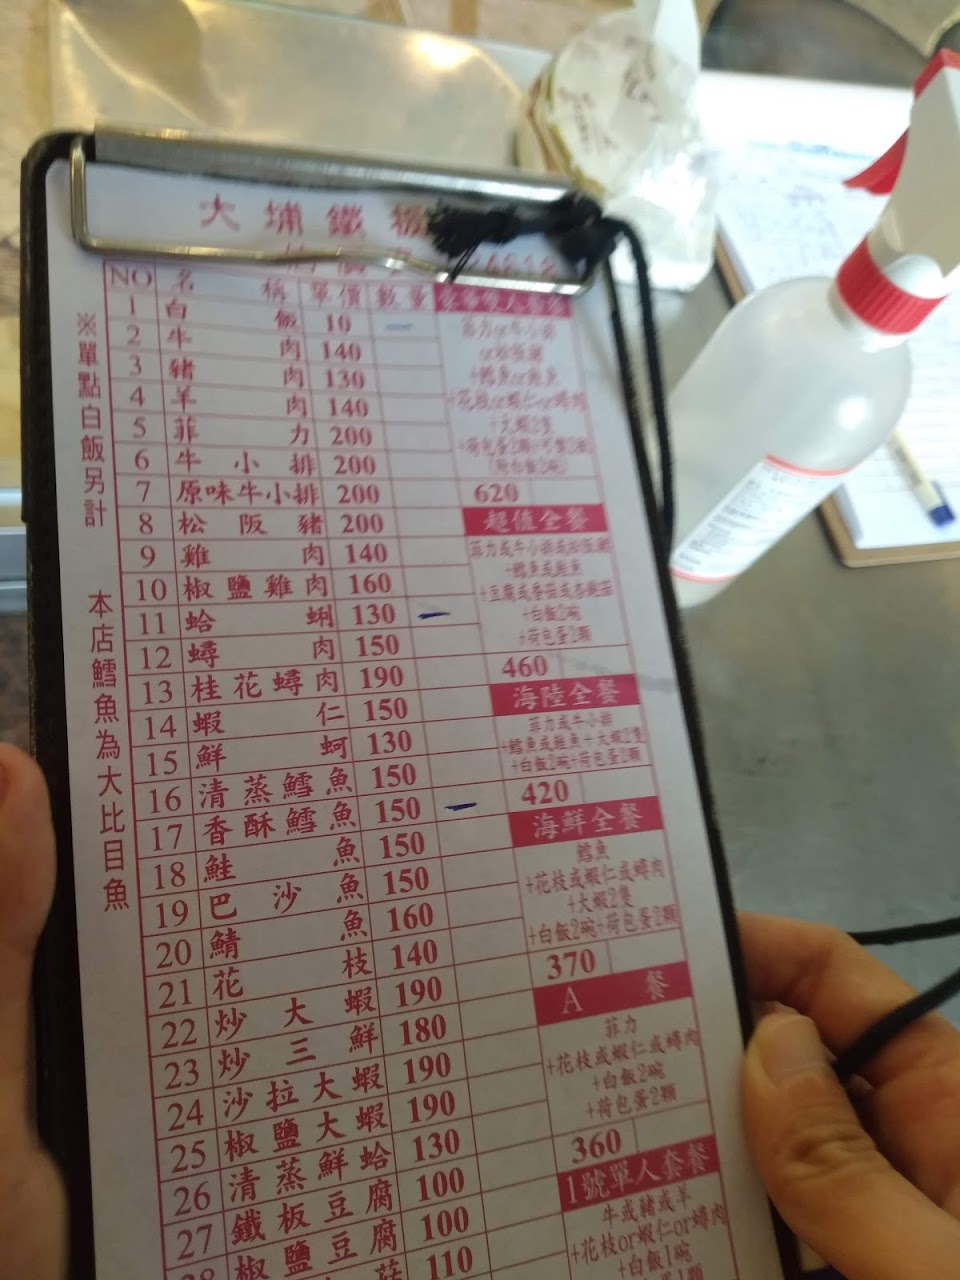 大埔鐵板
NO 名稱 單價 數量
1 白飯 10 一
2 牛肉 140
3 豬肉 130
4 羊肉 140
5 菲力 200
6 牛小排 200
7 原味牛小排 200
8 松阪豬 200
9 雞肉 140
10 椒鹽雞肉 160
11 蛤蜊 130 一
12 蟳肉 150
13 桂花蟳肉 190
14 蝦仁 150
15 鮮蚵 130
16 清蒸鱈魚 150
17 香酥鱈魚 150 一
18 鮭魚 150
19 巴沙魚 150
20 鯖魚 160
21 花枝 140
22 炒大蝦 190
23 炒三鮮 180
24 沙拉大蝦 190
25 椒鹽大蝦 190
26 清蒸鮮蛤 130
27 鐵板豆腐 100
28 椒鹽豆腐 100
菇 110
菲力or牛小排
or松阪豬
+鱈魚or鮭魚
+花枝or蝦仁or蟳肉
+大蝦2隻
+荷包蛋2顆
(附白飯2碗)
620
超值全餐
菲力或牛小排或松阪豬
+鱈魚或鮭魚
+豆腐或香菇或杏鮑菇
+白飯2碗
+荷包蛋2顆
460
海陸全餐
菲力或牛小排
+鱈魚或鮭魚+大蝦2隻
+白飯2碗+荷包蛋2顆
420
海鮮全餐
鱈魚
+花枝或蝦仁或蟳肉
+大蝦2隻
+白飯2碗+荷包蛋2顆
370
A餐
菲力
+花枝或蝦仁或蟳肉
+白飯2碗
+荷包蛋2顆
360
1號單人套餐
牛或豬或羊
+花枝or蝦仁or蟳肉
+白飯1碗
+荷包蛋1顆
※單點白飯另計
本店鱈魚為大比目魚